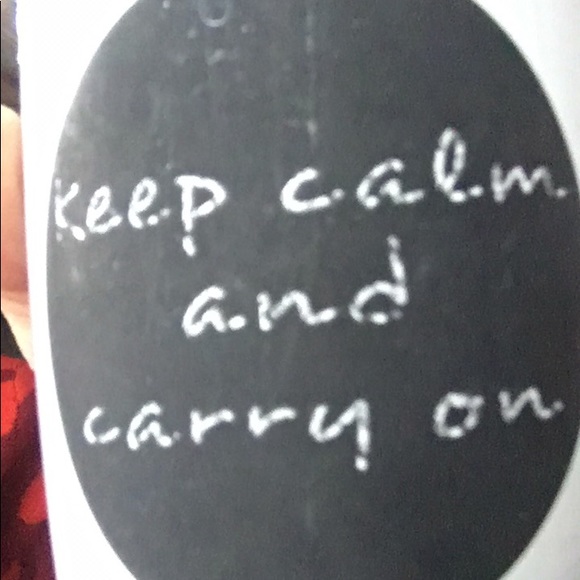 keep calm
and
carry on